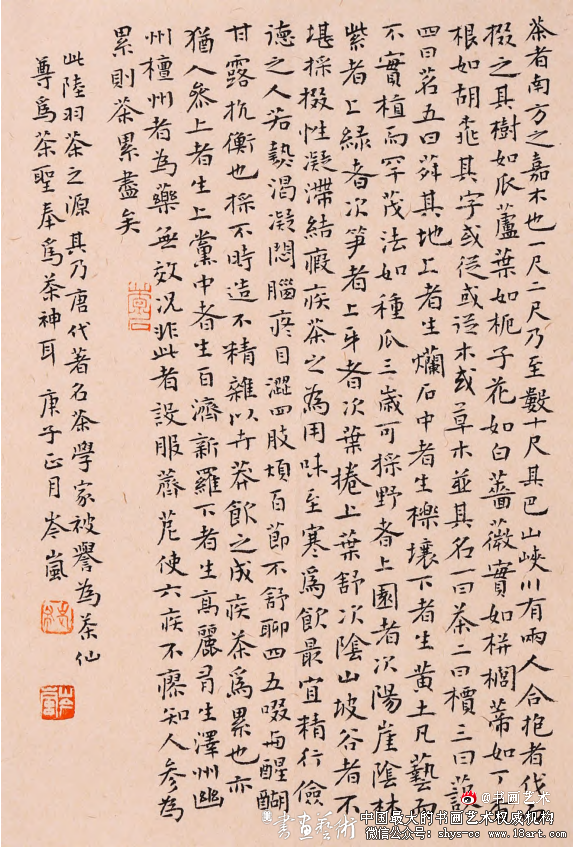 茶者南方之嘉木也一尺二尺乃至數十尺其巴山峽川有兩人合抱者伐而
掇之其樹如瓜蘆葉如梔子花如白薔薇實如栟櫚蒂如丁香
根如胡桃其字或從或從木或草木並其名一曰茶二曰檟三曰蔎
四曰茗五曰荈其地上者生爛石中者生櫟壤下者生黃土凡藝而
不實植而罕茂法如種瓜三歲可採野者上園者次陽崖陰林
紫者上綠者次笋者上牙者次葉捲上葉舒次陰山坡谷者不
堪採掇性凝滯結瘕疾茶之為用味至寒爲飲最宜精行儉
德之人若熱渴凝悶腦疼目澀四肢煩百節不舒聊四五啜与醍醐
甘露抗衡也採不時造不精雜以卉莽飲之成疾茶爲累也亦
猶人參上者生上黨中者生百濟新羅下者生高麗有生澤州幽
州檀州者為藥無效況非此者設服薺苨使六疾不瘳知人參為
累則茶累盡矣
此陸羽茶之源其乃唐代著名茶學家被譽為茶仙
尊爲茶聖奉爲茶神耳 庚子正月 岑嵐
@书画艺术
書畫藝術
中国最大的书画艺术权威机构
微信公众号:shys-cc www.18art.com